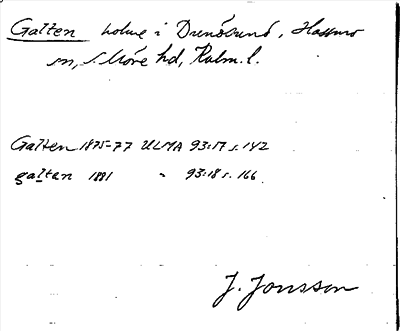 Galten holme i Drevösund, Hossmo
sn, S. Möre hd, Kalm. l.
Galten 1875-77 ULMA 93:17 s. 142
galtan 1881 " 93:18 s. 166.
J. Jonsson